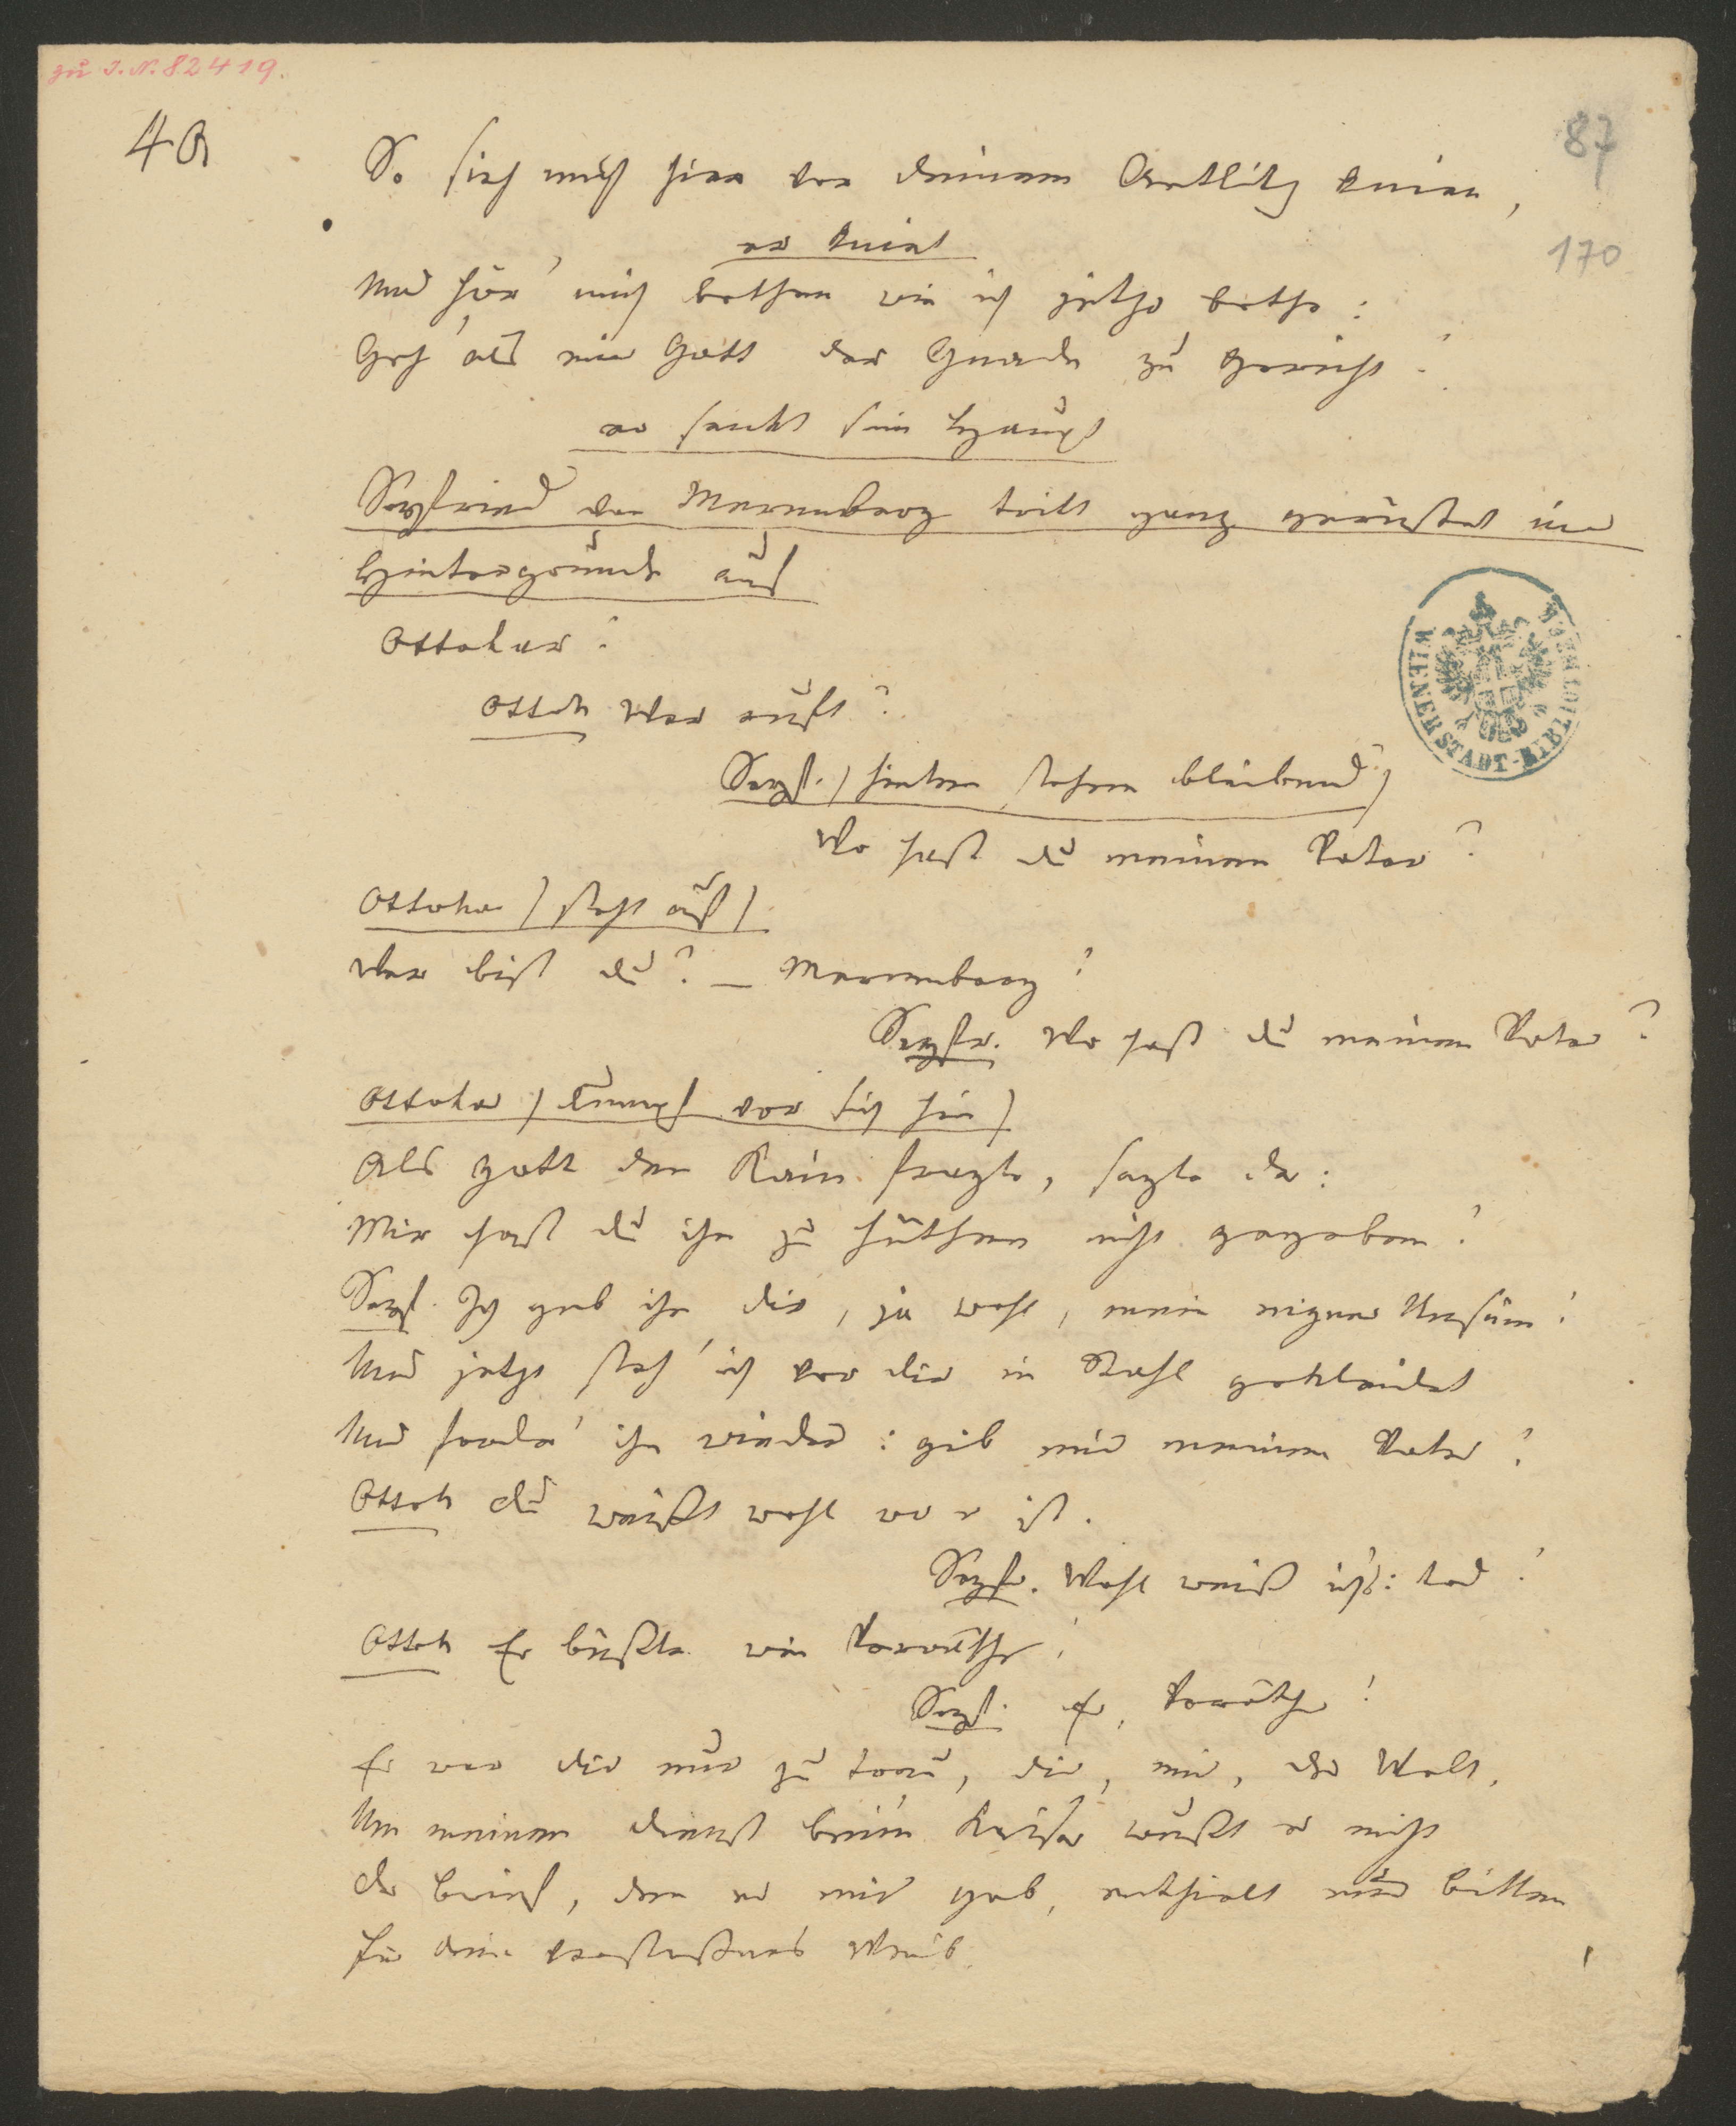 zu I.N. 82419.
40
87
170
So sieh mich hier vor deinem Antlitz knien,
er kniet
Und hör' mich bethen wie ich jetzo bethe:
Geh' als ein Gott der Gnade zu Gericht!
er senkt sein Haupt
Seyfried von Merenberg tritt ganz gerüstet im
Hintergrunde auf
Ottokar!
Ottok Wer ruft?
Seyf. (hinten stehen bleibend)
Wo hast du meinen Vater?
Ottokar (steht auf)
Wer bist du? – Merenberg!
Seyfr. Wo hast du meinen Vater?
Ottokar (dumpf vor sich hin)
Als Gott den Kain fragte, sagte der:
Mir hast du ihn zu hüthen nicht gegeben!
Seyf. Ich gab ihn dir, ja wohl, mein eigner Unsinn!
Und jetzt steh' ich vor dir in Stahl gekleidet
Und fordr' ihn wieder: gib mir meinen Vater!
Ottok Du weißt wohl wo er ist.
Seyfr. Wohl weiß ich's: tod!
Ottok Er büßte wie Verräther!
Seyf. Er, Verräther!
Er war dir nur zu treu, dir, mir, der Welt.
Um meinen Dienst beim Kaiser wußt er nicht
Der Brief, den er mir gab, enthielt nur Bitten
Für dein verstoßnes Weib.
WIENER STADT-BIBLIOTHEK